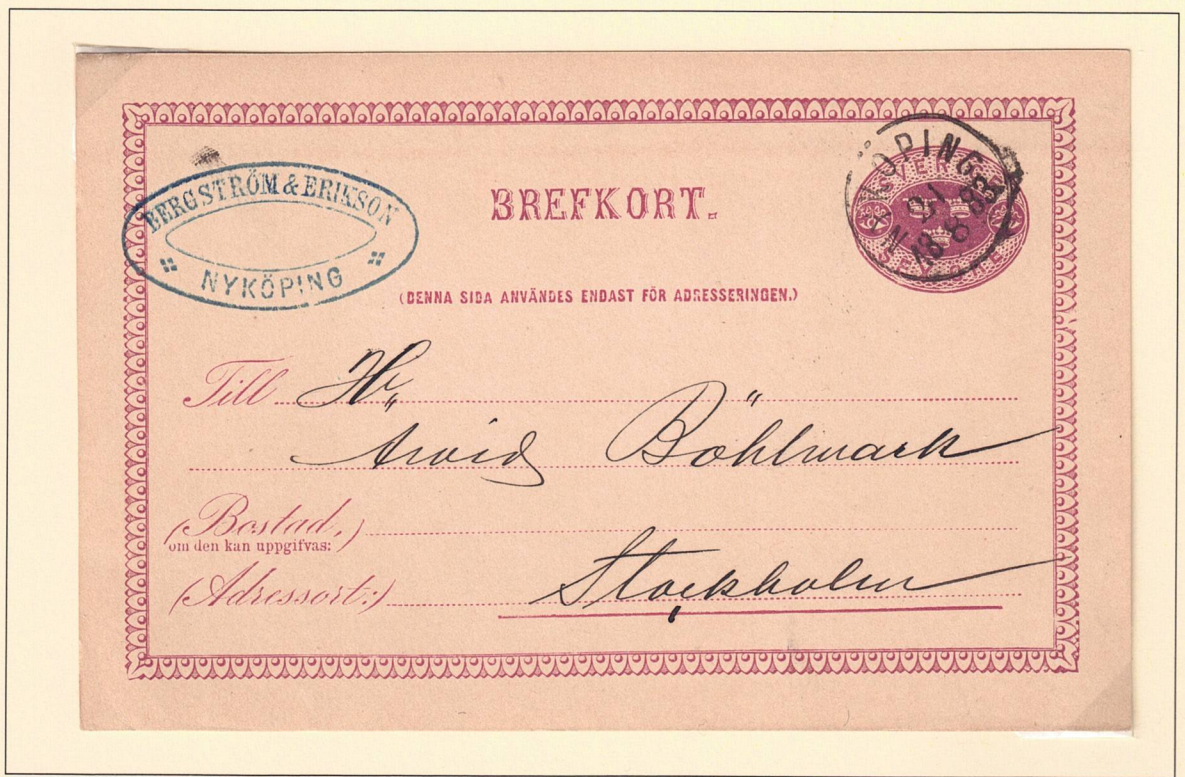 BERGSTRÖM & ERIKSON
NYKÖPING
BREFKORT.
NYKÖPING
21
8
83
(DENNA SIDA ANVÄNDES ENDAST FÖR ADRESSERINGEN.)
Till Hr
Arvid Böhlmark
(Bostad,)
om den kan uppgifvas:
(Adressort:) Stockholm